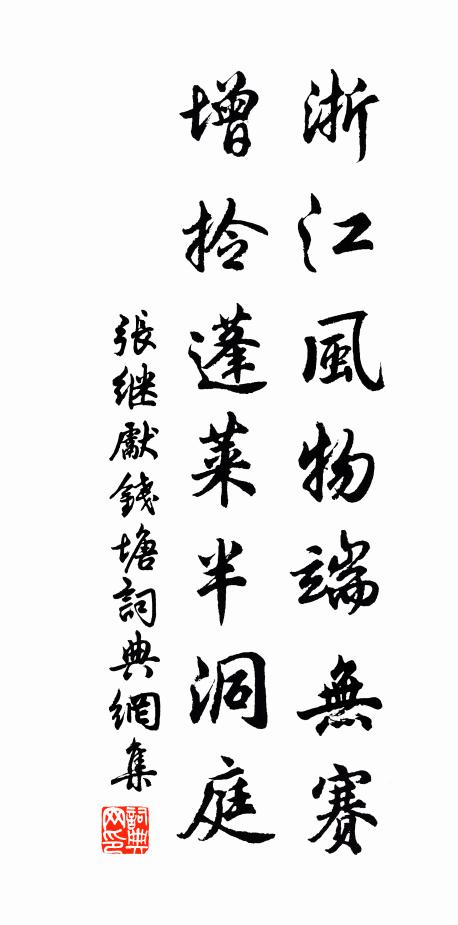 浙江風物端無賽
增拾蓬萊半洞庭
張继獻錢塘詞典網集
詞典网印